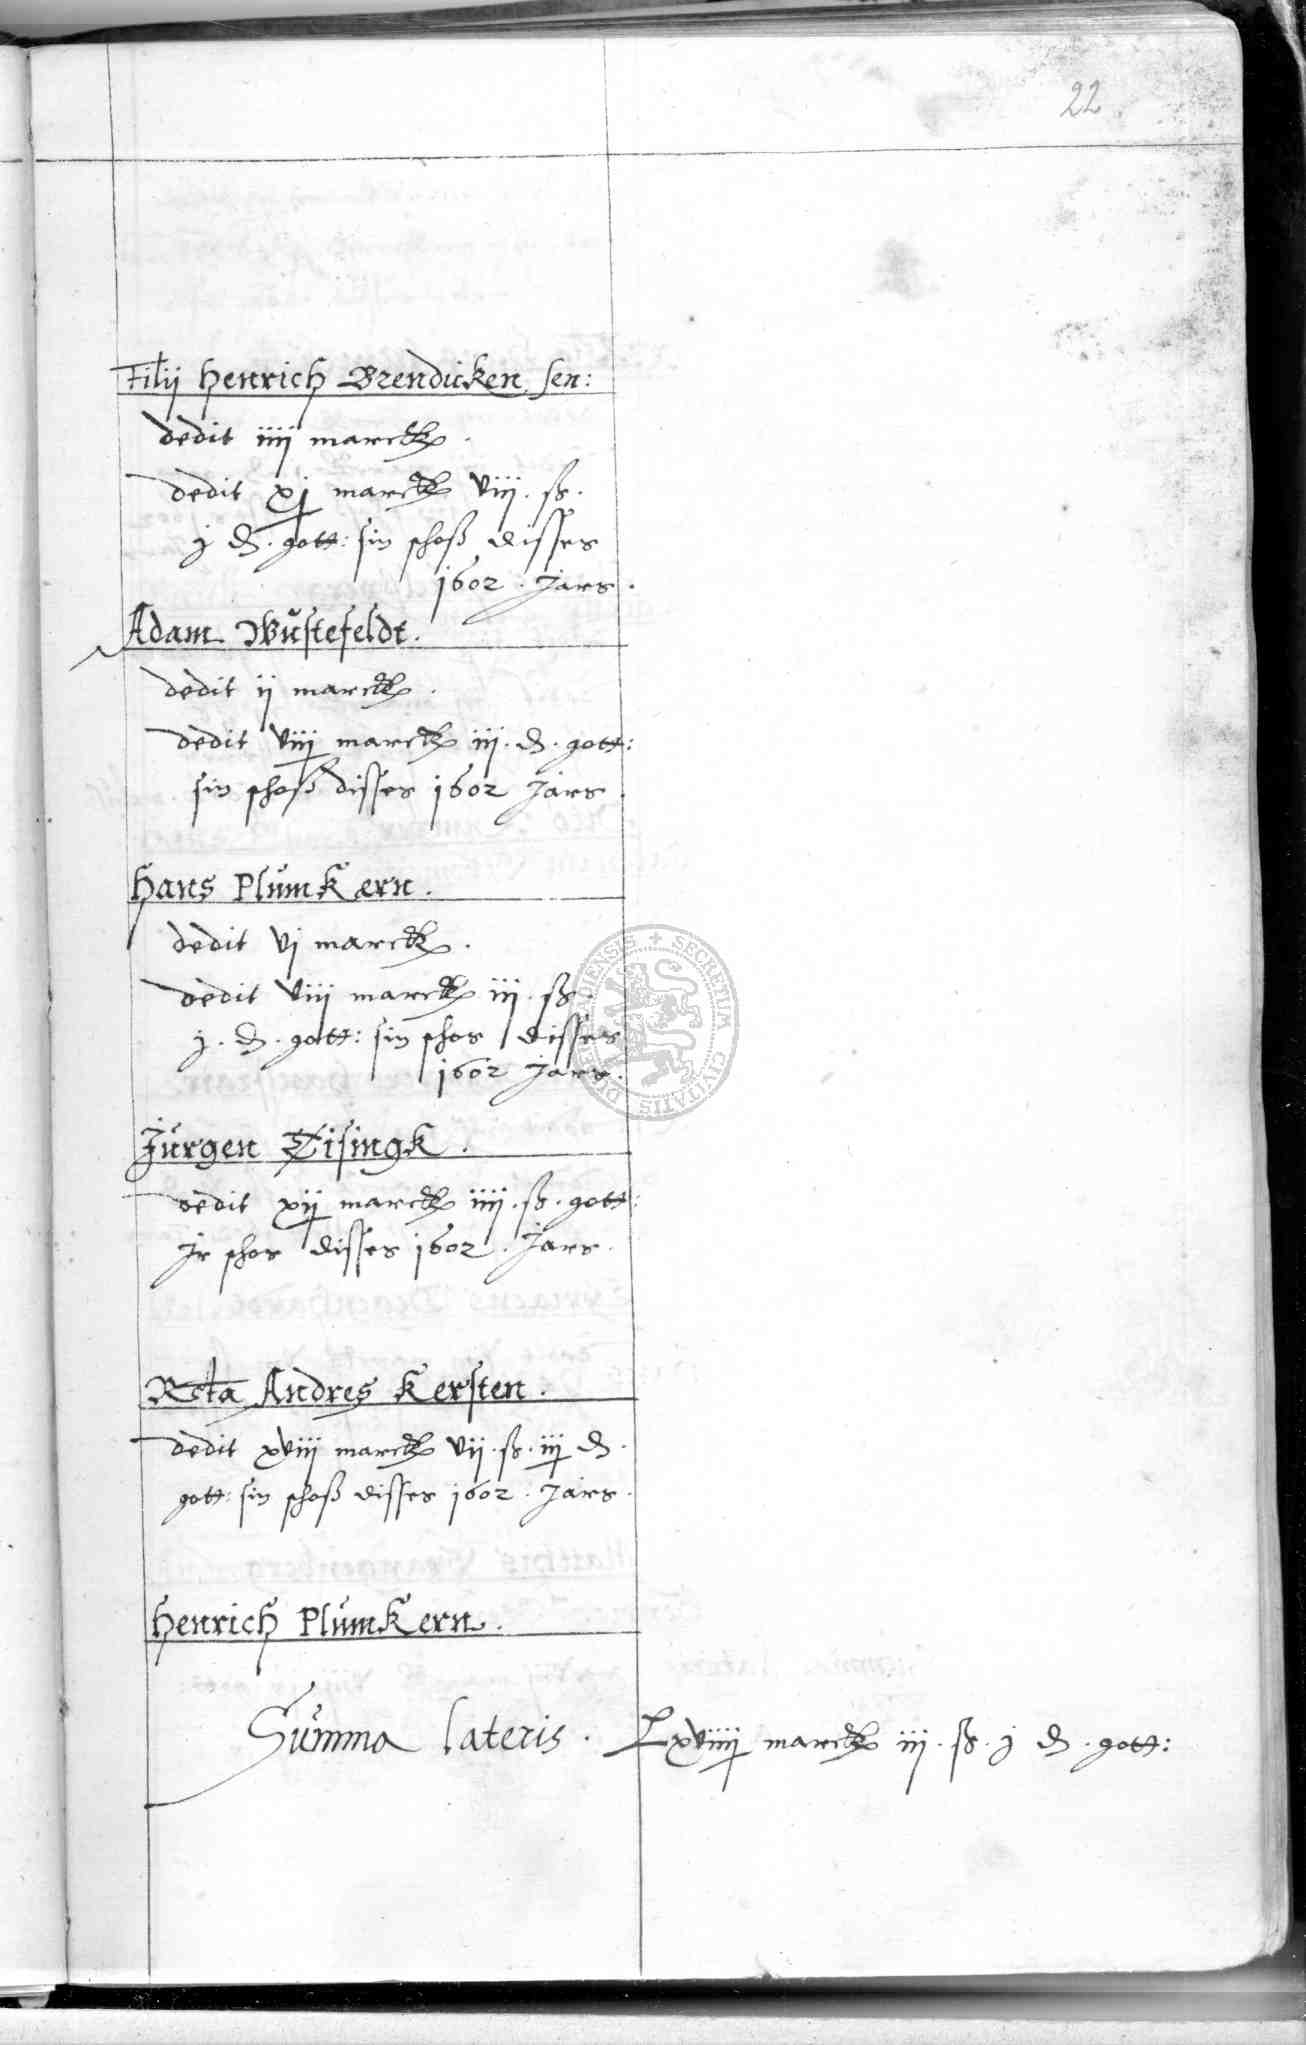 22
Filij Henrich Brendicken sen:
dedit iiij marck.
dedit xj marck viij. ß.
j d. gott: sin schoß disses
1602. Jars.
Adam Wüstefeldt.
dedit ij marck.
dedit viiij marck iij. d. gott:
sin schoß disses 1602 Jars.
Hans Plümkern.
dedit vj marck.
dedit viij marck iij. ß.
j. d. gott: sin schos disses
1602 Jars.
Jürgen Tisingk.
dedit xij marck iiij. ß. gott:
Jr schos disses 1602. Jars.
Rcta Andres Kersten.
dedit xviij marck vij. ß. iij d.
gott: sin schoß disses 1602. Jars.
Henrich Plümkern.
Summa lateris. Lxviiij marck iij. ß. j d. gott:
SECRETUM CIVITATIS DUDERSTADIENSIS